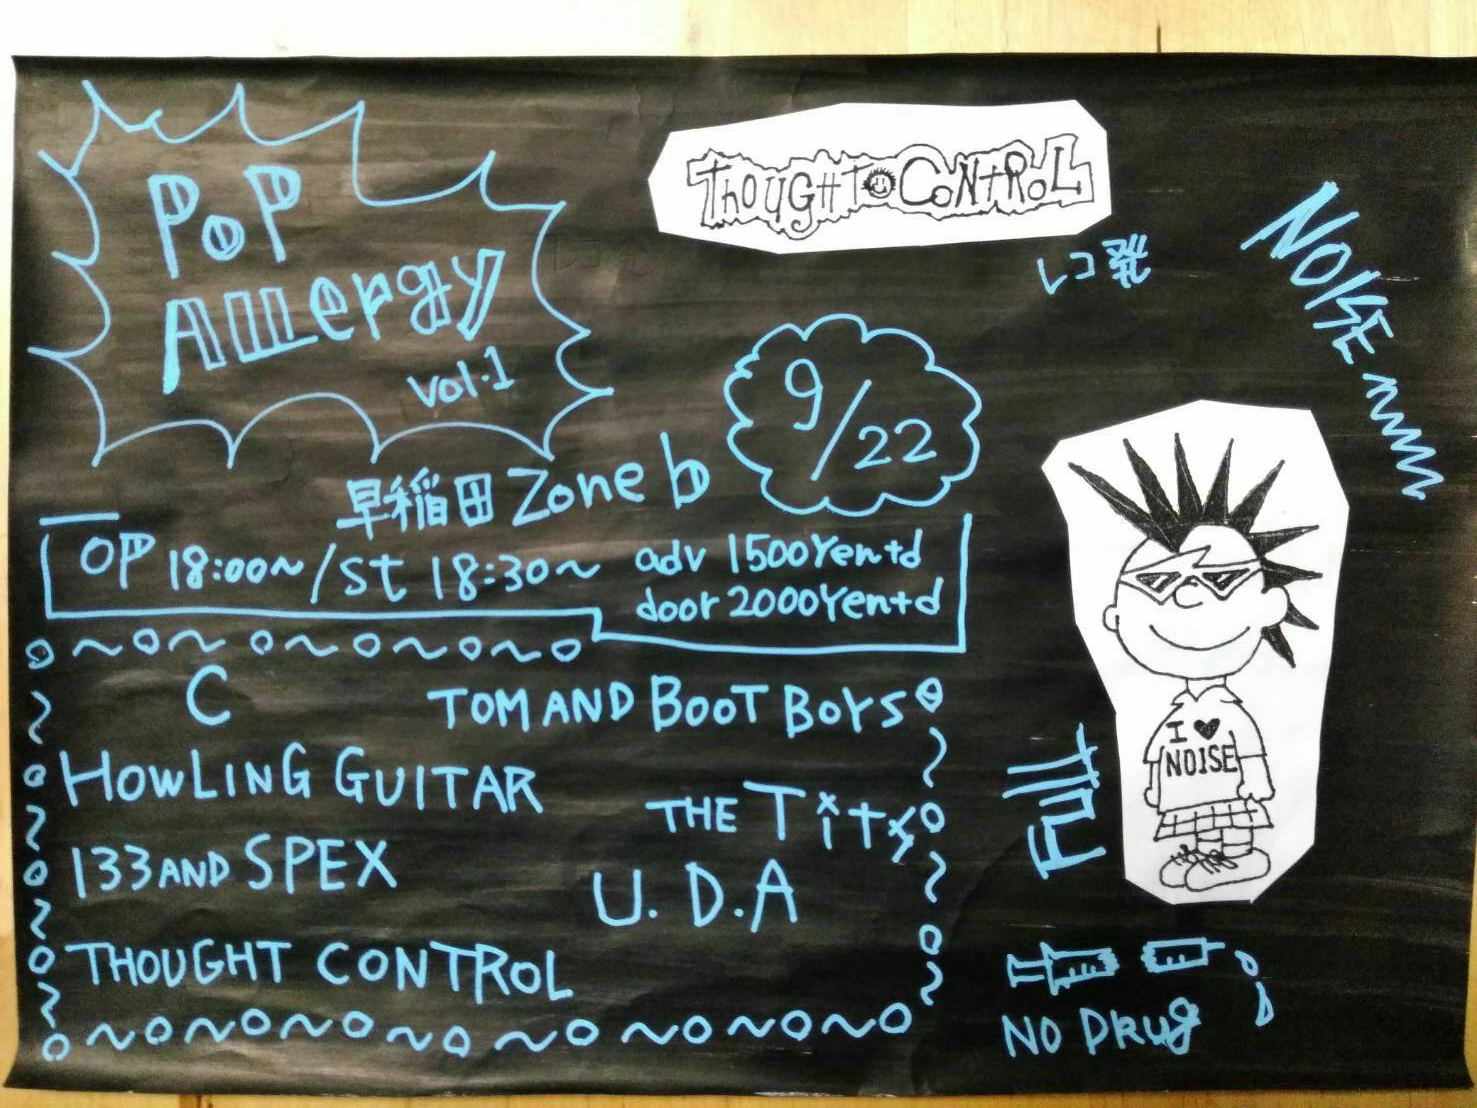 POP
ALLERGY
vol.1
THOUGHT CONTROL
レコ発
NOISE
9/22
早稲田 Zone b
OP 18:00〜/st 18:30〜
adv 1500Yen+d
door 2000Yen+d
C
TOM AND BOOT BOYS
HOWLING GUITAR
THE TiTS
133 AND SPEX
U.D.A
THOUGHT CONTROL
I ♥
NOISE
NO DRUG